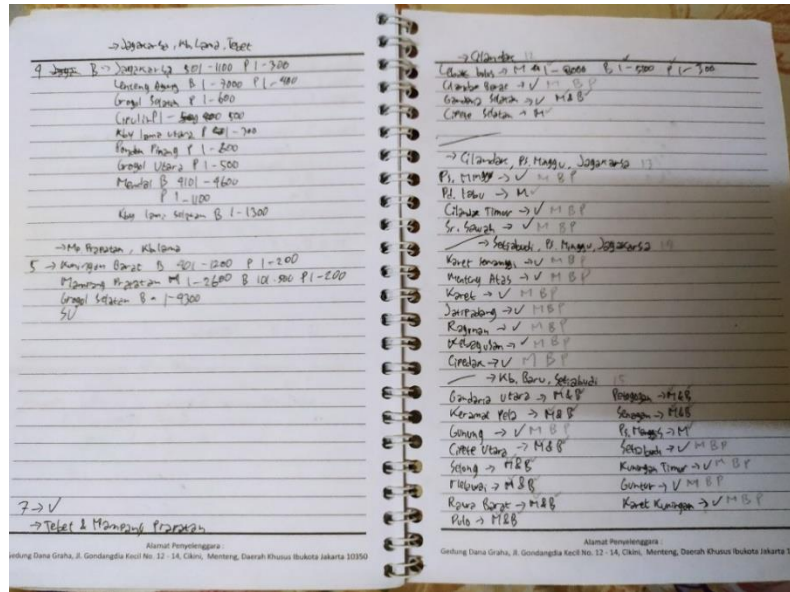 → Jagakarsa, Kb Lama, Tebet
4 B → Jagakarsa 501 - 1100 P 1 - 300
Lenteng Agung B 1 - 7000 P 1 - 400
Grogol Selatan P 1 - 600
Cipulir P 1 - 500
Kby lama utara P 1 - 700
Pondok Pinang P 1 - 800
Grogol Utara P 1 - 500
B 4101 - 4600
P 1 - 1100
Kby lama selatan B 1 - 1300
→ Mp Prapatan, Kb lama
5 → Kuningan Barat B 901 - 1200 P 1 - 200
Mampang Prapatan M 1 - 2600 B 101 - 500 P 1 - 200
Grogol Selatan B - 1 - 9300
SU
7 → √
→ Tebet & Mampang Prapatan
Alamat Penyelenggara :
Gedung Dana Graha, Jl. Gondangdia Kecil No. 12 - 14, Cikini, Menteng, Daerah Khusus Ibukota Jakarta 10350
→ Cilandak 12
Lebak bulus → M 1 - 8000 B 1 - 5200 P 1 - 300
Cilandak Barat → √ M B P
Gandaria Selatan → √ M&B
Cipete Selatan → M
→ Cilandak, Ps. Minggu, Jagakarsa 13
Ps. Minggu → √ M B P
Pd. Labu → M
Cilandak Timur → √ M B P
Sr. Sawah → √ M B P
→ Setiabudi, Ps. Minggu, Jagakarsa 14
Karet Semanggi → √ M B P
Menteng Atas → √ M B P
Karet → √ M B P
Jatipadang → √ M B P
Ragunan → √ M B P
Kebagusan → √ M B P
Cipedak → √ M B P
→ Kb. Baru, Setiabudi 15
Gandaria Utara → M&B Petogogan → M&B
Keramat Pela → M&B Senayan → M&B
Gunung → √ M B P Ps. Manggis → M
Cipete Utara → M&B Setiabudi → √ M B P
Selong → M&B Kuningan Timur → √ M B P
Melawai → M&B Guntur → √ M B P
Rawa Barat → M&B Karet Kuningan → √ M B P
Pulo → M&B
Alamat Penyelenggara :
Gedung Dana Graha, Jl. Gondangdia Kecil No. 12 - 14, Cikini, Menteng, Daerah Khusus Ibukota Jakarta 1